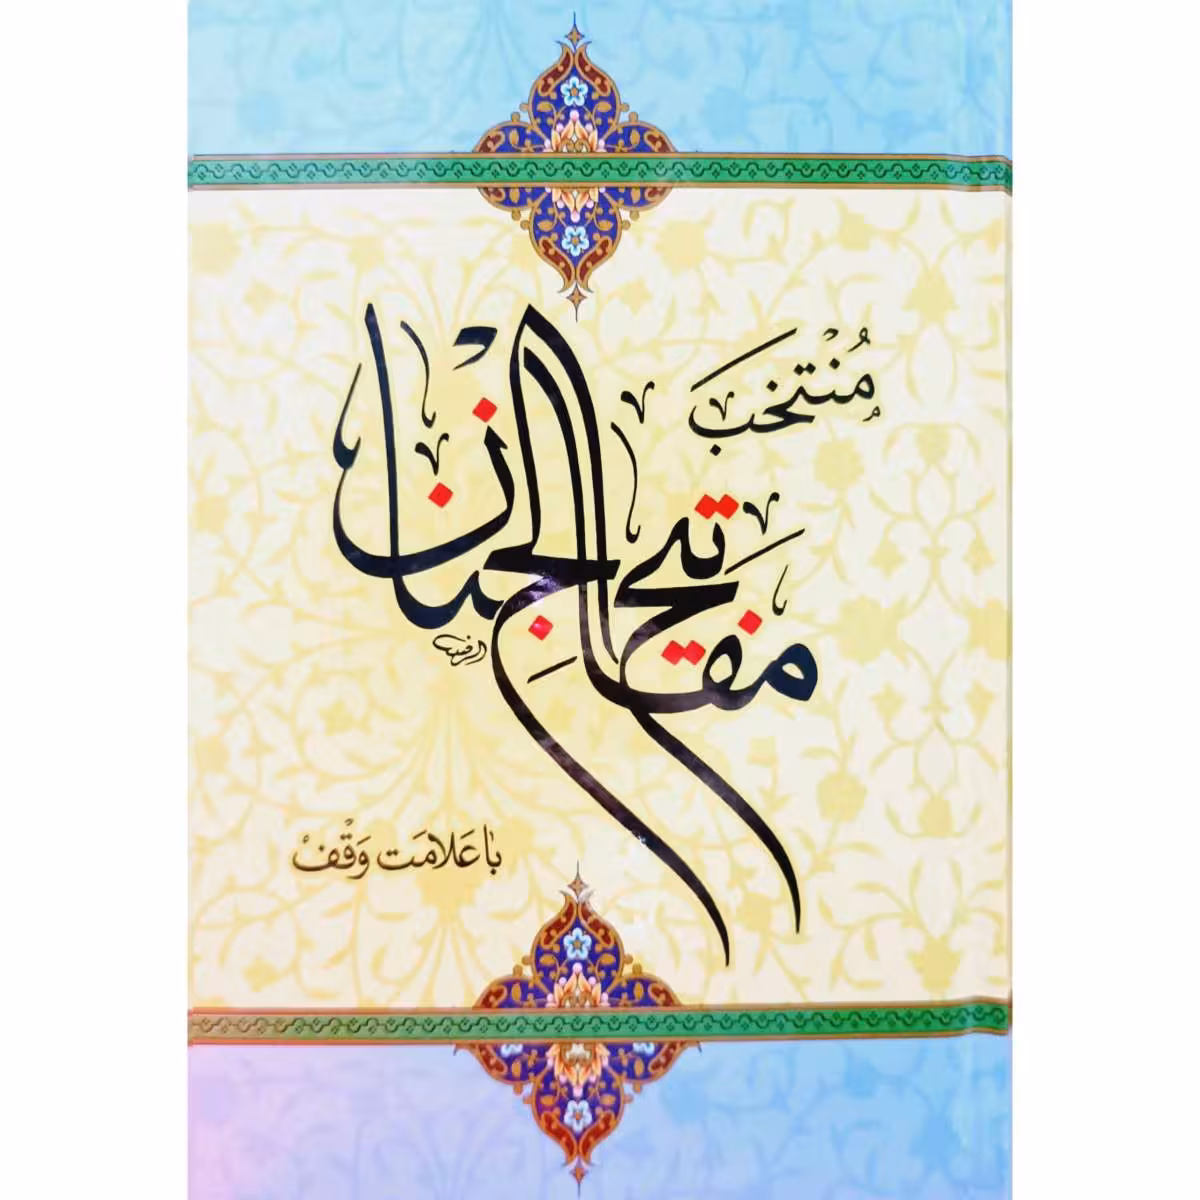 مُنْتَخَبُ
مفاتیح الجنان
باعَلامَت وَقْفْ